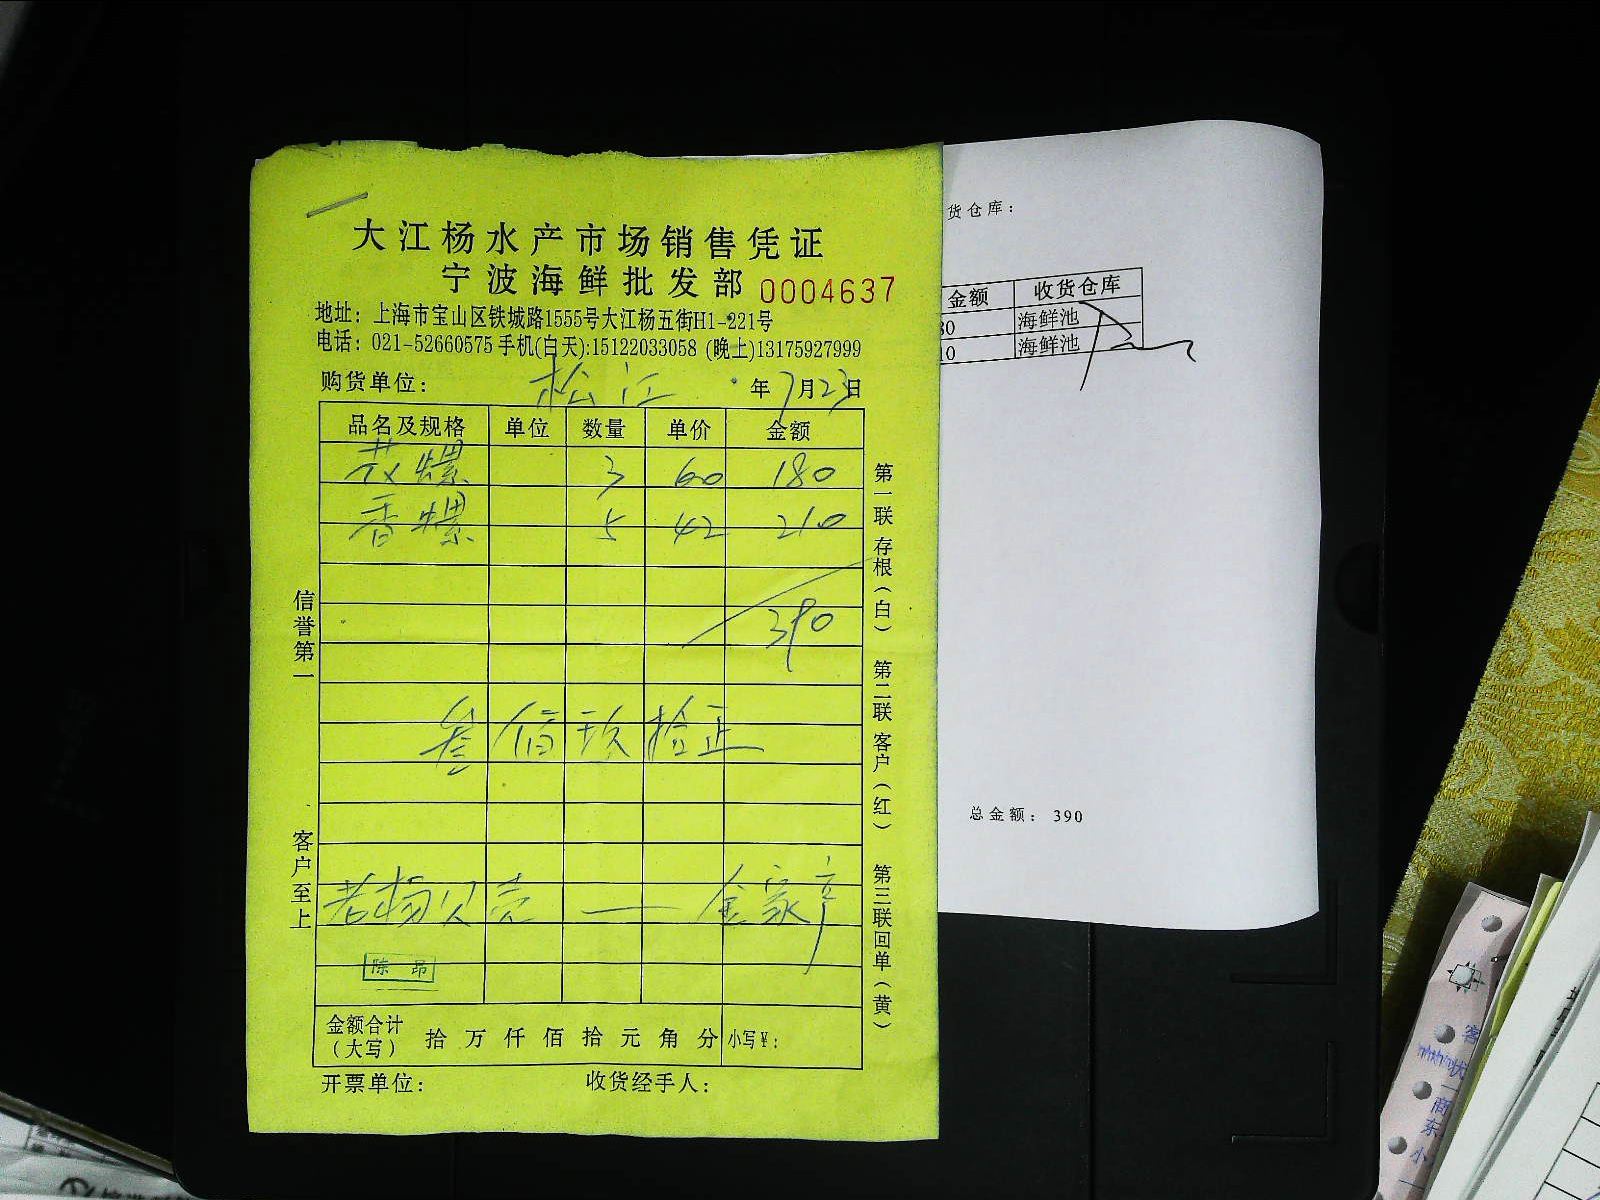 大江杨水产市场销售凭证
宁波海鲜批发部 0004637
地址：上海市宝山区铁城路1555号大江杨五街H1-221号
电话：021-52660575 手机(白天):15122033058 (晚上)13175927999
购货单位： 松江 年7月23日
品名及规格 单位 数量 单价 金额
花螺 3 60 180
香螺 5 42 210
390
叁佰玖拾正
老杨贝壳 — 金家亭
陈昂
金额合计（大写） 拾 万 仟 佰 拾 元 角 分 小写¥：
开票单位： 收货经手人：
信誉第一
客户至上
第一联 存根（白） 第二联 客户（红） 第三联 回单（黄）
货仓库：
金额 收货仓库
80 海鲜池
10 海鲜池
总金额： 390
客
商
东
小